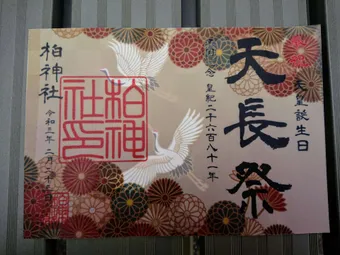 天皇誕生日
天長祭
皇紀二千六百八十一年
柏神社
令和三年二月二十三日
柏神
社印